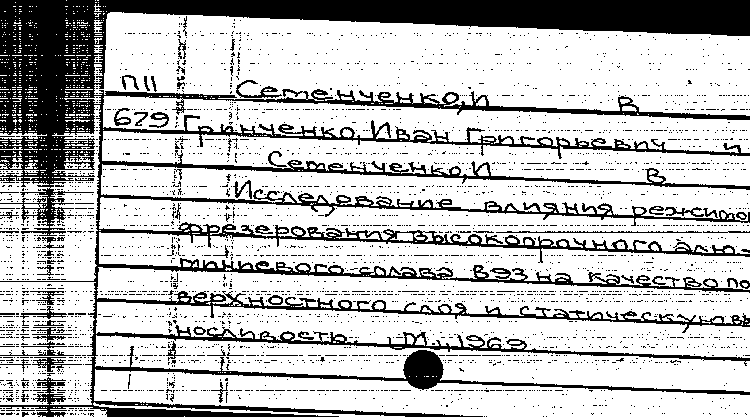 П11 Семенченко, И В
629 Гринченко, Иван Григорьевич и
Семенченко, И В
Исследование влияния режимов
фрезерования высокопрочного алю-
миниевого сплава В93 на качество по
верхностного слоя и статическую вы
носливость. М., 1969